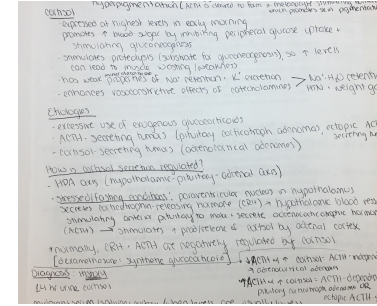 hyperpigmentation (ACTH is cleaved to form α melanocyte stimulating
which promotes skin pigmentation
cortisol
- expressed at highest levels in early morning
promotes ↑ blood sugar by inhibiting peripheral glucose uptake +
stimulating gluconeogenesis
- stimulates proteolysis (substrate for gluconeogenesis), so ↑ levels
can lead to muscle wasting (weakness)
- has weak properties of Na⁺ retention + K⁺ excretion
- enhances vasoconstrictive effects of catecholamines
> Na⁺·H₂O retention
HTN + weight ga
Etiologies
- excessive use of exogenous glucocorticoids
- ACTH-secreting tumors (pituitary corticotroph adenomas, ectopic ACT
secreting tu
- cortisol-secreting tumors (adenocortical adenomas)
How is cortisol secretion regulated?
- HPA axis (hypothalamic-pituitary-adrenal axis)
- stressed/fasting conditions: paraventricular nucleus in hypothalamus
secretes corticotropin-releasing hormone (CRH) →
stimulating anterior pituitary to make + secrete adrenocorticotrophic hormone
(ACTH) → stimulates ↑ production + release of cortisol by adrenal cortex
* normally, CRH + ACTH are negatively regulated by cortisol
[dexamethasone: synthetic glucocorticoid]
Diagnosis:
24 hr urine cortisol
↓ACTH + ↑ cortisol = ACTH-indepen
→ adrenocortical adenoma
↑ACTH + ↑ cortisol = ACTH-dependen
pituitary corticotroph adenoma OR
ectopic ACT